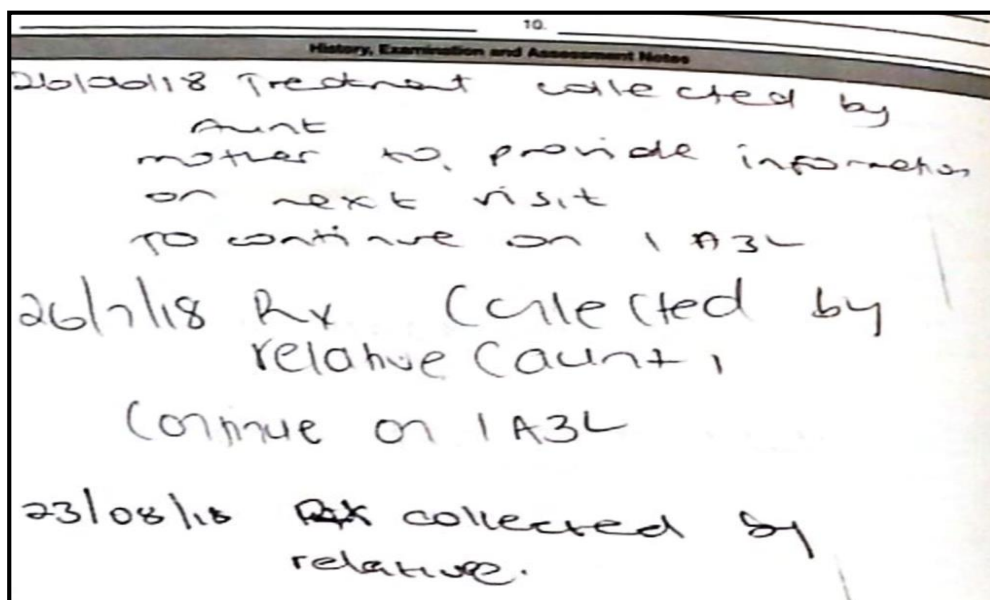 10.
History, Examination and Assessment Notes
26/06/18 Treatment collected by
Aunt
mother to provide information
on next visit
To continue on 1 A3L
26/7/18 Rx Collected by
relative (aunt)
Continue on 1 A3L
23/08/18 Rx collected by
relative.